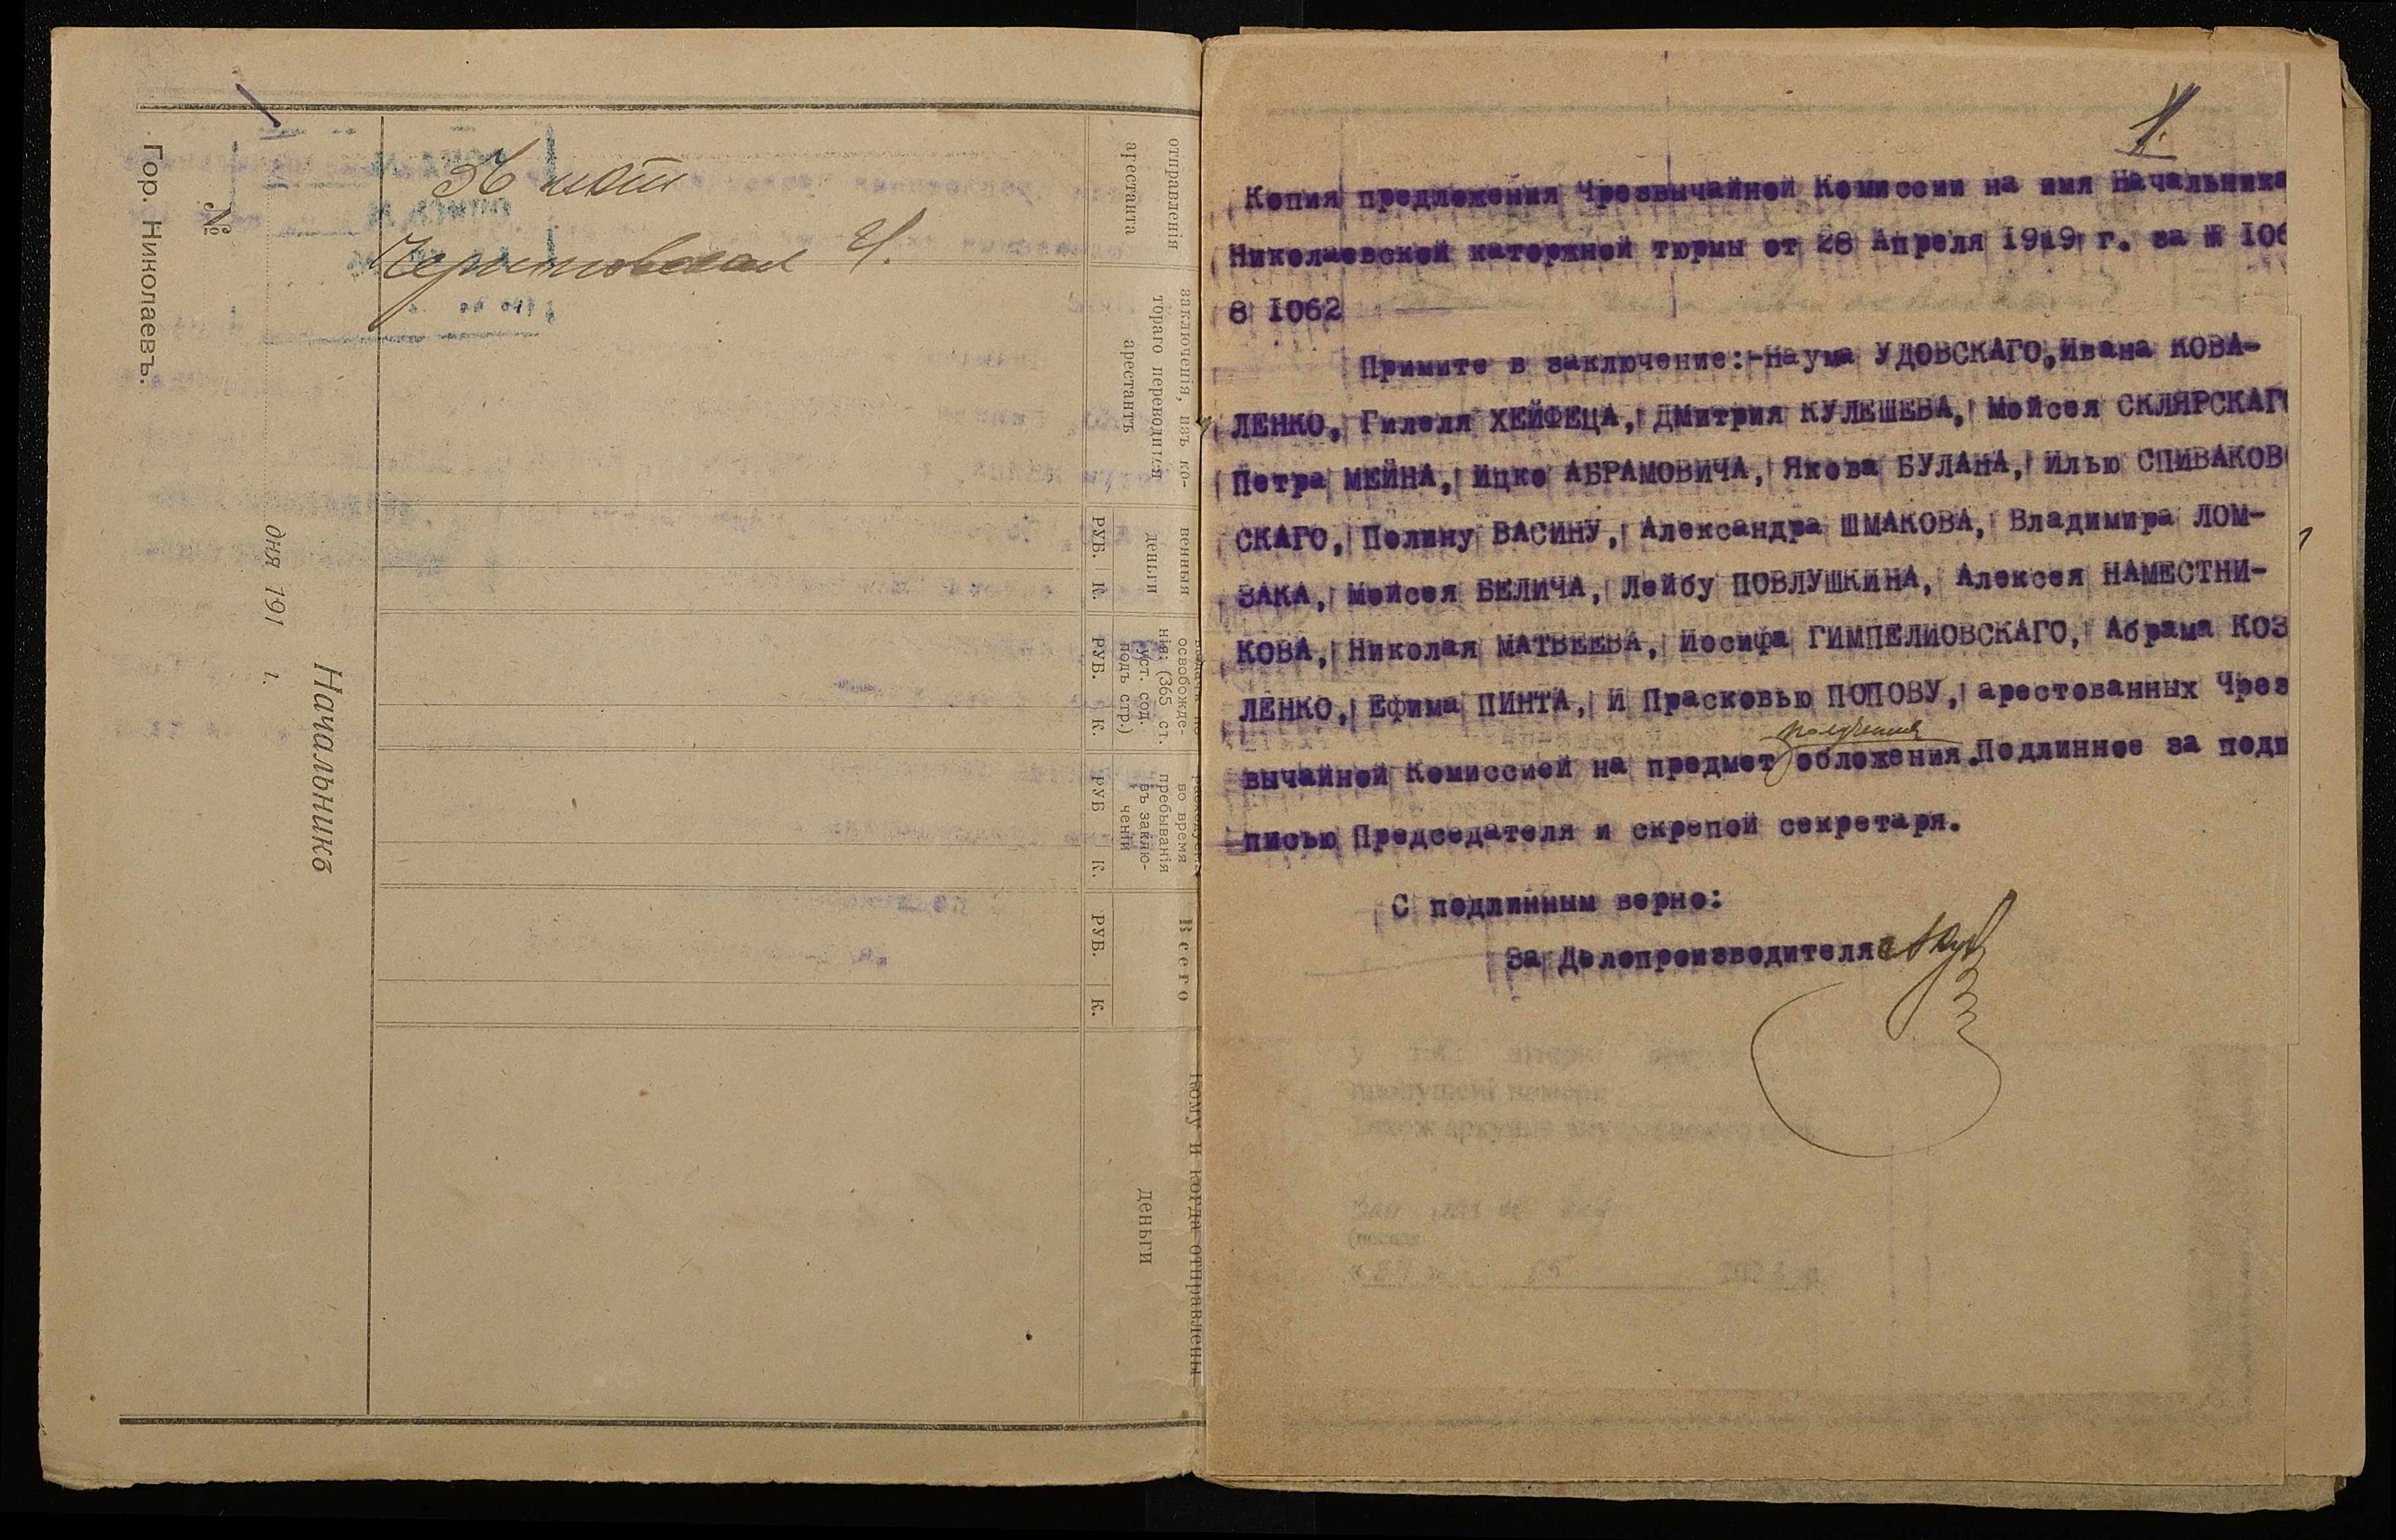 отправленія
арестанта
заключенія, изъ ко-
тораго переводится
арестантъ
венныя
деньги
РУБ. К.
освобожде-
нія: (365 ст.
уст. сод.
подъ стр.)
РУБ. К.
во время
пребыванія
въ заклю-
ченіи
РУБ К.
Всего
РУБ. К.
кому и когда отправлены
деньги
Начальникъ
дня 191 г.
№
Гор. Николаевъ.
1.
Копия предложения Чрезвычайной Комиссии на имя Начальника
Николаевской каторжной тюрмы от 28 Апреля 1919 г. за № 106
8 1062
Примите в заключение:-Наума УДОВСКАГО, Ивана КОВА-
ЛЕНКО, Гилеля ХЕЙФЕЦА, ДМитрия КУЛЕШЕВА, Мойсея СКЛЯРСКАГО
Петра МЕЙНА, Ицко АБРАМОВИЧА, Якова БУЛАНА, Илью СПИВАКОВ
СКАГО, Полину ВАСИНУ, Александра ШМАКОВА, Владимира ЛОМ-
ЗАКА, Мойсея БЕЛИЧА, Лейбу ПОВЛУШКИНА, Алексея НАМЕСТНИ-
КОВА, Николая МАТВЕЕВА, Иосифа ГИМПЕЛИОВСКАГО, Абрама КОЗ
ЛЕНКО, Ефима ПИНТА, И Прасковью ПОПОВУ, арестованных Чрез
получения
вычайной Комиссией на предмет обложения. Подлинное за подп
писью Председателя и скрепой секретаря.
С подлинным верно:
За Делопроизводителя